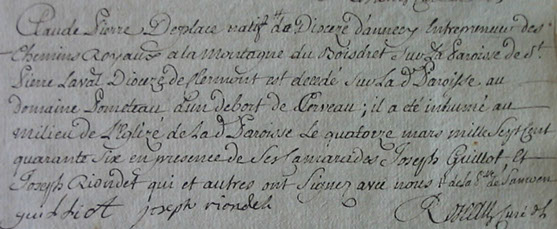 Claude Pierre Deplace natif du Diocèze d'annecy Entrepreneur des
Chemins Royaux a la montagne du Boisdret Sur la Paroisse de St
Pierre Laval Dioceze de Clermont est decedé sur la de Paroisse au
Domaine d'un debort de Cerveau ; il a eté inhumé au
milieu de L'Eglize de la de Paroisse Le quatorze mars mille Sept Cent
quarante Six en presence de Ses Camarades Joseph Guillot Et
Joseph Riondet qui et autres ont Signez avec nous
guilliot joseph riondet Curé